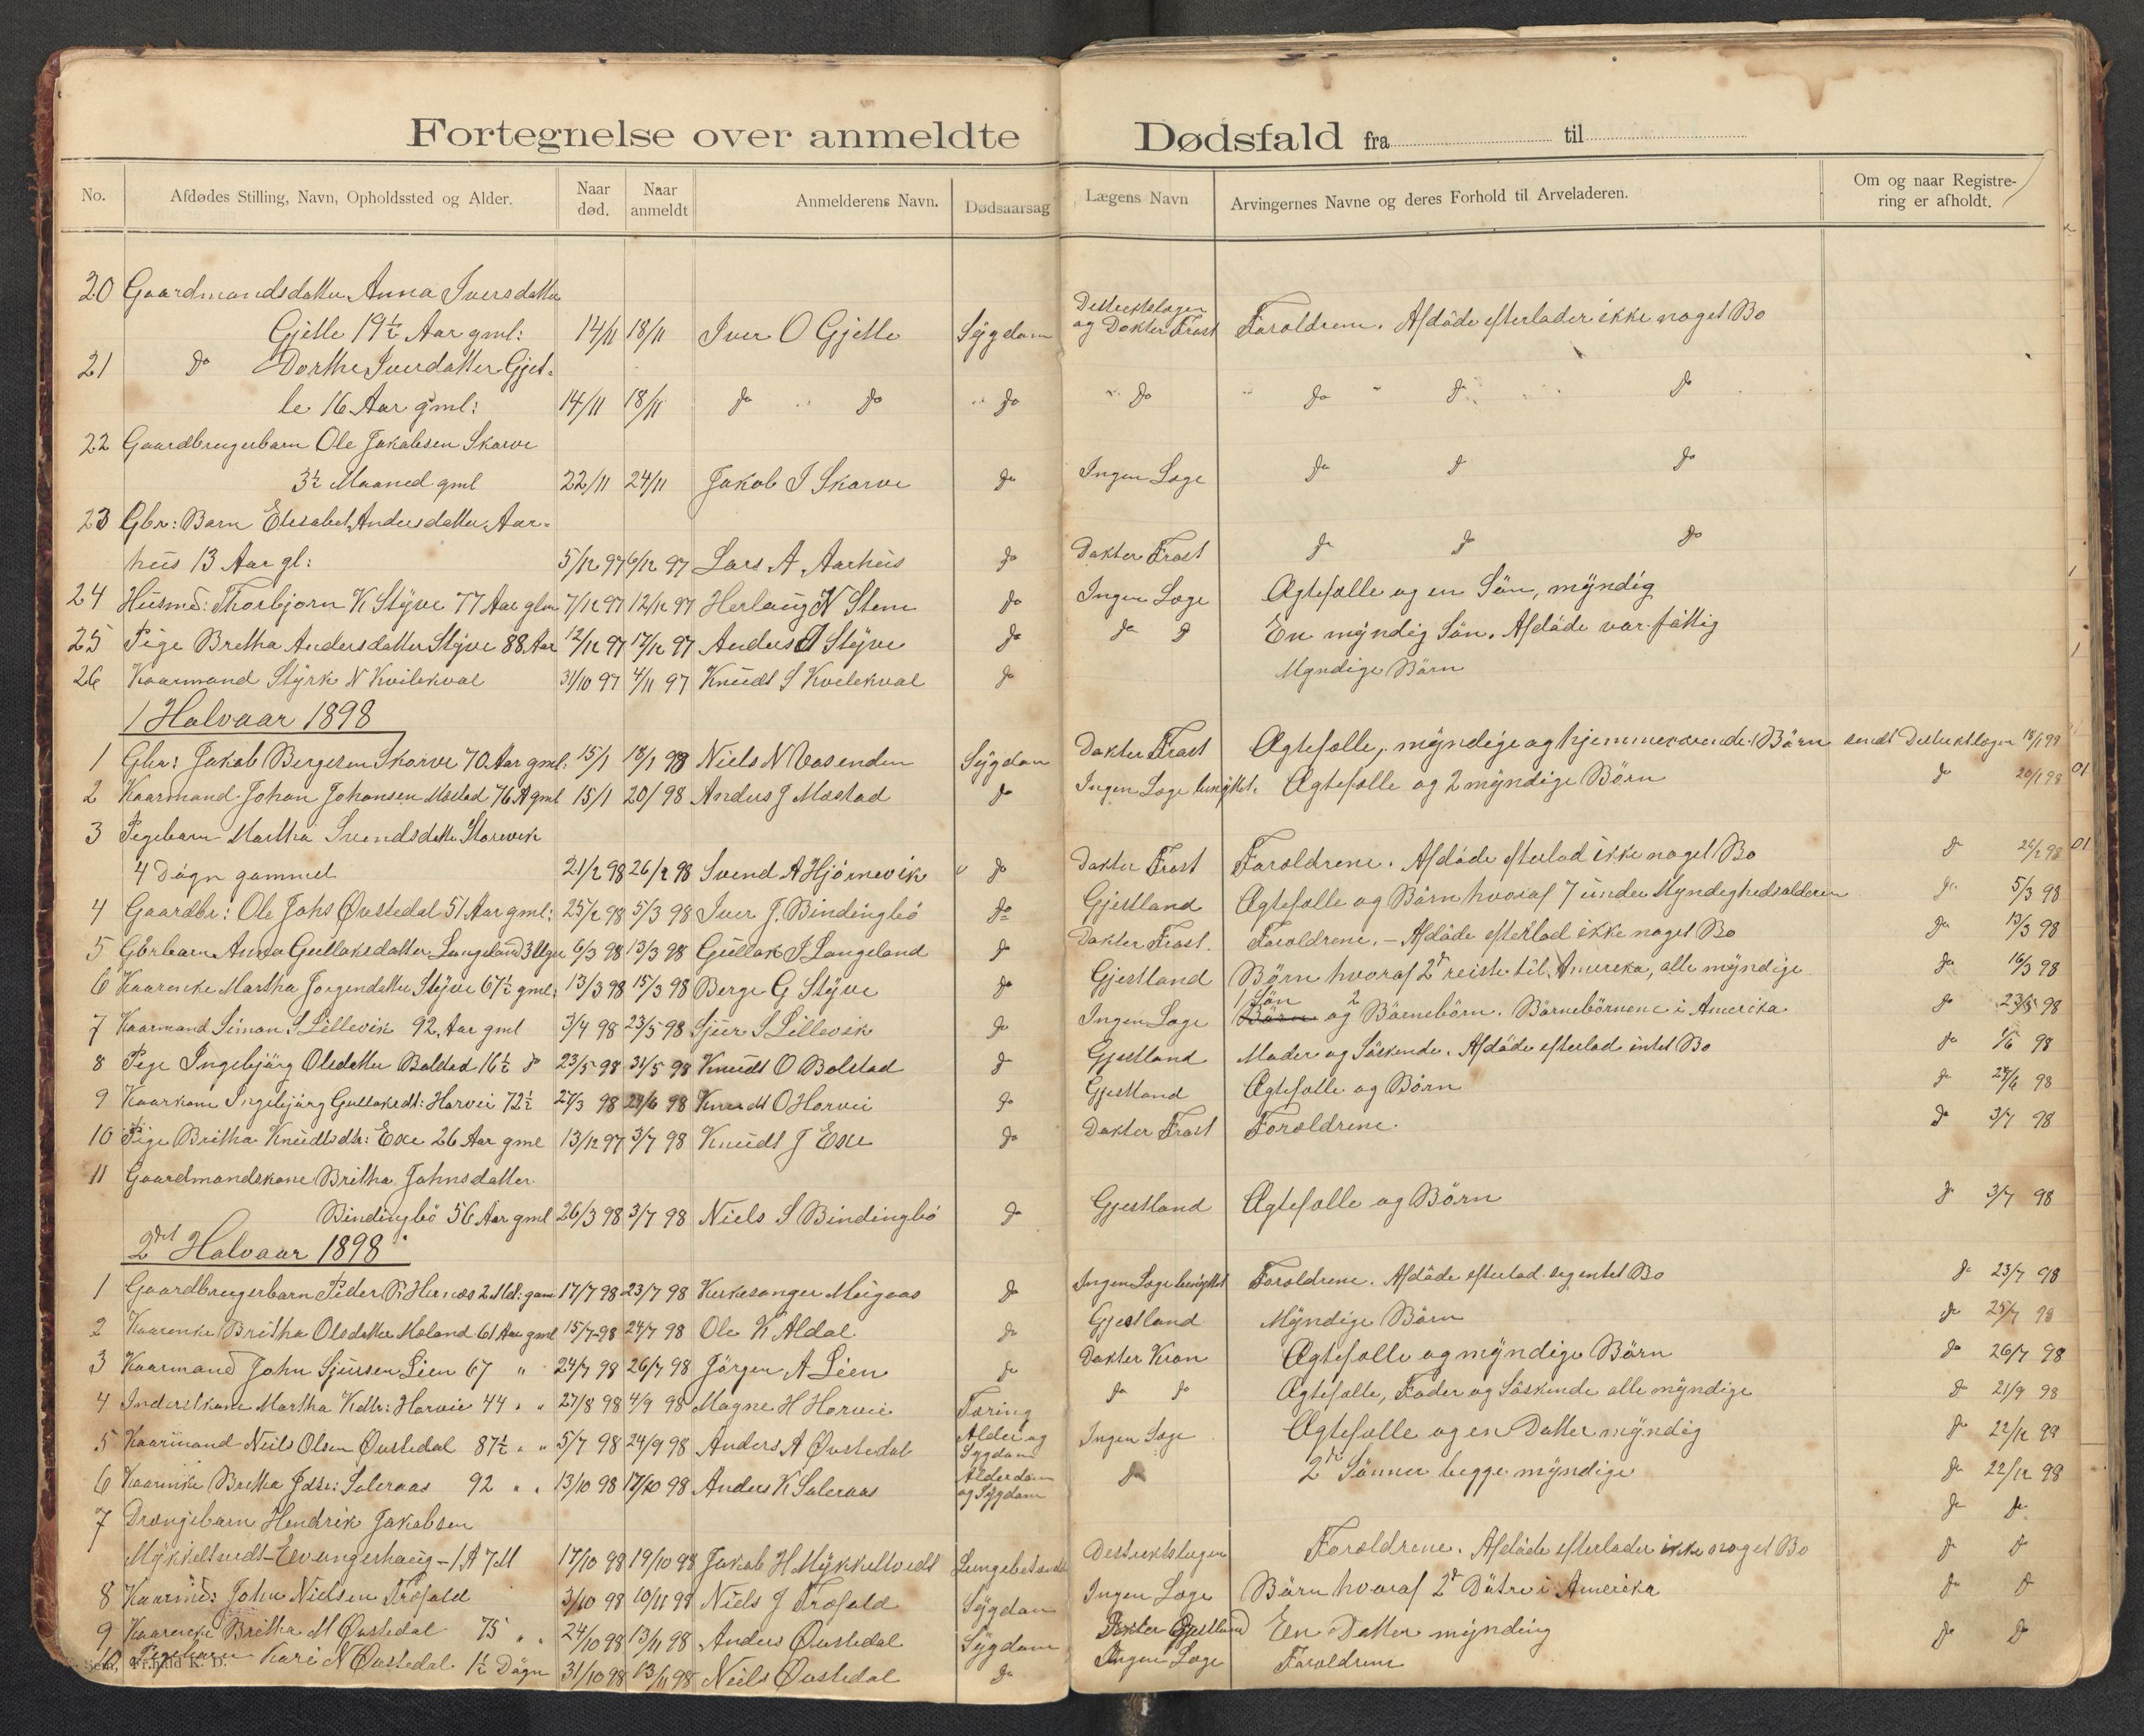 Fortegnelse over anmeldte Dødsfald fra til
No. Afdødes Stilling, Navn, Opholdssted og Alder. Naar død. Naar anmeldt Anmelderens Navn. Dødsaarsag Lægens Navn Arvingernes Navne og deres Forhold til Arveladeren. Om og naar Registrering er afholdt.
20 Gaardmandsdatter Anna Iversdatter
Gjelle 19½ Aar gml: 14/11 18/11 Iver O Gjelle Sÿgdom og Dokter Frost Foroldrene. Afdöde efterlader ikke noget Bo
21 do Dorthe Iversdatter Gjel-
le 16 Aar gml: 14/11 18/11 do do do do do do do
22 Gaardbrugerbarn Ole Jakobsen Skorve
3½ Maaned gml 22/11 24/11 Jakob I Skorve do Ingen Læge do do do
23 Gbr: Barn Elisabet Andersdatter Aar-
hus 13 Aar gl: 5/12 97 6/12 97 Lars A Aarhus do Dokter Frost do do do
24 Husmd: Thorbjorn K Stÿve 77 Aar glm 7/12 97 12/12 97 Herlaug N Stem do Ingen Læge Ægtefælle og en Sön, mÿndig
25 Pige Bretha Andersdatter Stÿve 88 Aar 12/12 97 17/12 97 Anders Stÿve do do do En mÿndig Sön. Afdöde var fattig
26 Kaarmand Stÿrk N Kvilekval 31/10 97 4/11 97 Knudt S Kvilekval do Myndige Börn
1 Halvaar 1898
1 Gbr: Jakob Bergesen Skorve 70 Aar gml: 15/1 18/1 98 Niels N Væsenden Sÿgdom Dokter Frost Ægtefælle, mÿndige og hjemmeværende Börn sendt 18/1 98
2 Kaarmand Johan Johansen Mæstad 76 A gml 15/1 20/ 98 Anders J Mæstad do Ingen Læge benÿttet. Ægtefælle og 2 mÿndige Börn do 20/1 98
3 Pegebarn Martha Svendsdatter Storevik
4 Dögn gammel 21/2 98 26/2 98 Svend A Hjörnevik do Dokter Frost Foroldrene. Afdöde efterlod ikke noget Bo do 26/2 98
4 Gaardbr: Ole Johs Øvstedal 51 Aar gml: 25/2 98 5/3 98 Iver J. Bindingbö do Gjestland Ægtefælle og Börn hvoraf 7 under Myndighedsalderen do 5/3 98
5 Gbrbarn Anna Gullaksdatter Langeland 3 Uger 6/3 98 13/3 98 Gullak I Langeland do Dokter Frost. Foroldrene. — Afdöde efterlod ikke noget Bo do 13/3 98
6 Kaarenke Martha Jorgendatter Stÿve 67½ gml: 13/3 98 15/3 98 Berge G Stÿve do Gjestland Börn hvoraf 2 reiste til Amerika, alle mÿndige do 16/3 98
7 Kaarmand Simon S Lillevik 92 Aar gml 3/4 98 23/5 98 Sjur S Lillevik do Ingen Læge 1 Sön og 2 Börnebörn. Börnebörnene i Amerika do 23/5 98
8 Pige Ingebjörg Olsdatter Bolstad 16½ do 23/5 98 31/5 98 Knudt O Bolstad do Gjestland Moder og Söskende. Afdöde efterlod intet Bo do 1/6 98
9 Kaarkone Ingebjörg Gullaksdt: Horvei 72½ 27/3 98 29/6 98 Knudt O Horvei do Gjestland Ægtefælle og Börn do 29/6 98
10 Pige Britha Knudtsdtr: Exe 26 Aar gml 13/12 97 3/7 98 Knudt J Exe do Dokter Frost Foroldrene. do 3/7 98
11 Gaardmandskone Britha Johnsdatter
Bindingbö 56 Aar gml 26/3 98 3/7 98 Niels S Bindingbö do Gjestland Ægtefælle og Börn do 3/7 98
2det Halvaar 1898
1 Gaardbrugerbarn Peder R Hernæs 2 Md: gam 17/7 98 23/7 98 Kirkesanger Mugaas do Ingen Læge benÿttet Foroldrene. Afdöde efterlod seg intet Bo do 23/7 98
2 Kaarenke Britha Olsdatter Moland 61 Aar gml 15/7-98 24/7 98 Ole K Aldal do Gjestland Mÿndige Börn do 25/7 98
3 Kaarmand John Sjursen Lien 67 " 24/7 98 26/7 98 Jörgen A Lien do Dokter Kron Ægtefælle og mÿndige Börn do 26/7 98
4 Inderstkone Martha Kdtr: Horvei 44 " " 27/8 98 4/9 98 Magne H Horvei Tæring do do Ægtefælle, Fader og Söskende alle mÿndige do 21/9 98
5 Kaarmand Neils Olsen Øvstedal 87½ " " 5/7 98 24/9 98 Anders A Øvstedal Alder og Sygdom Ingen Læge Ægtefælle og en Datter mÿndig do 22/12 98
6 Kaarenke Britha Jdtr: Saleraas 92 " " 13/10 98 17/10 98 Anders K Saleraas Alderdom og Sÿgdom do 2 Sönner begge mÿndige do 22/12 98
7 Drengebarn Hendrik Jakobsen do do
Mÿkkeltvedt-Evangerhaug-1 A 7 M 17/10 98 19/10 98 Jakob H Mÿkkeltvedt Foroldrene. Afdöde efterlader ikke noget Bo do do
8 Kaarmd: John Nielsen Træfald 3/10 98 10/11 98 Niels J Træfald Sÿgdom Ingen Læge Börn hvoraf 2 Döttre i Amerika do do
9 Kaarenke Britha M Øvstedal 75 " " 24/10 98 13/11 98 Anders Øvstedal Sÿgdom Dokter Gjestland En Datter mÿndig do do
10 Pigebarn Kari N Øvstedal 1½ Dögn 31/10 98 13/11 98 Neils Øvstedal do Ingen Læge Foroldrene